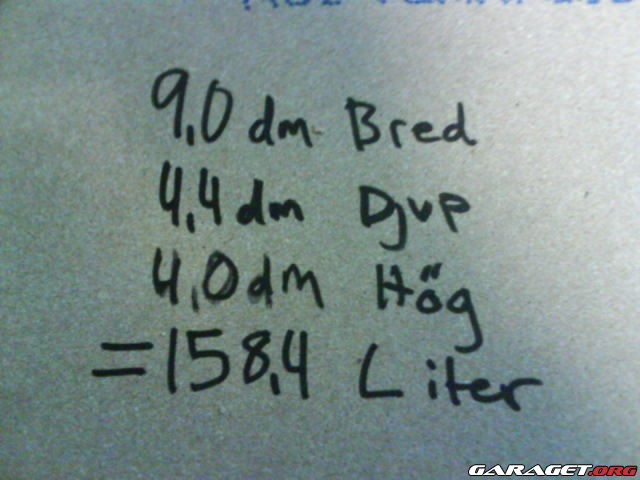 9,0 dm Bred
4,4 dm Djup
4,0 dm Hög
=158,4 Liter
GARAGET.ORG